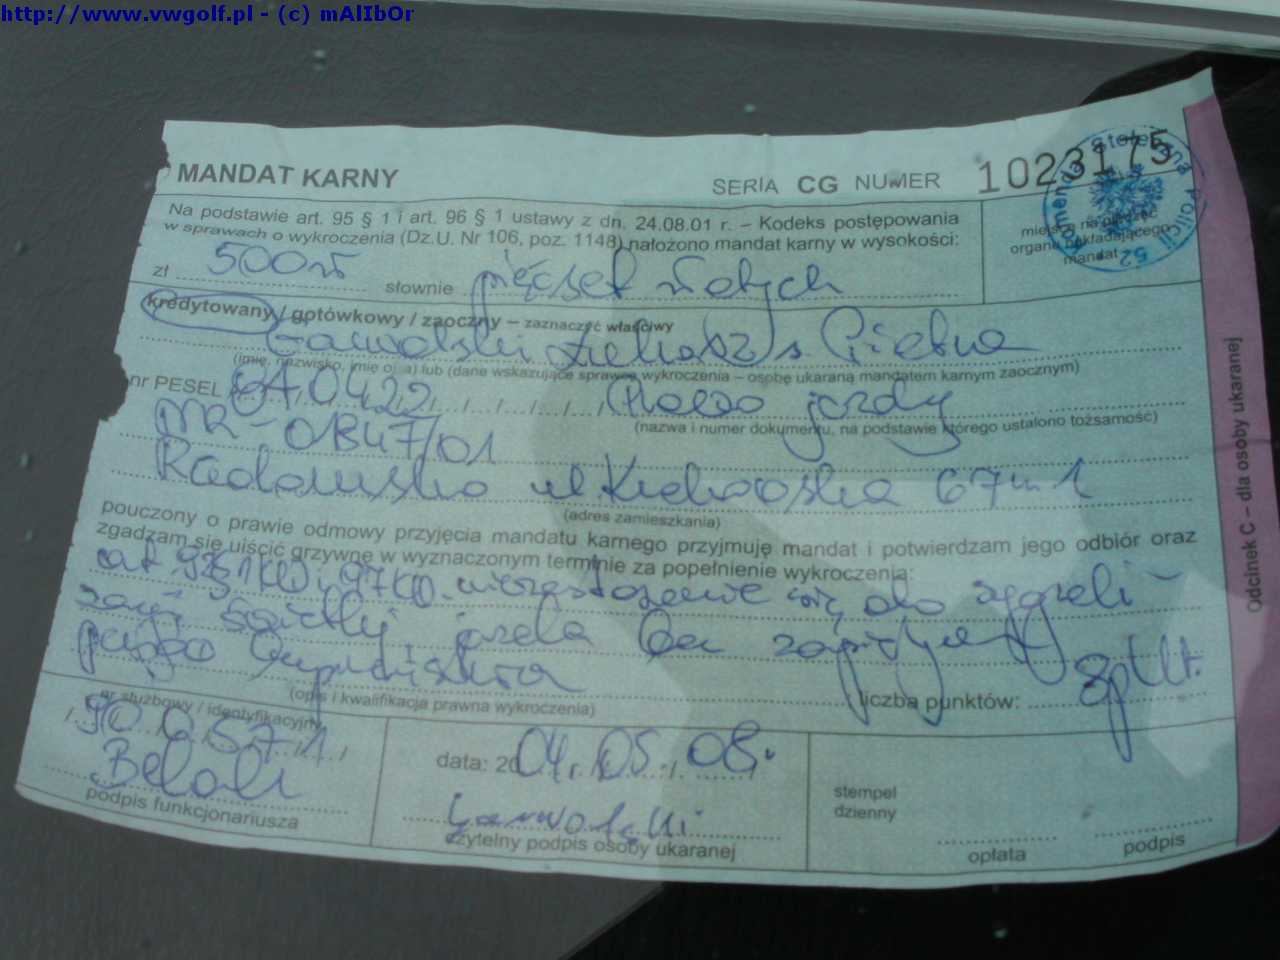 http://www.vwgolf.pl - (c) mAlIbOr
MANDAT KARNY
SERIA CG NUMER 1023175
Komenda Stołeczna Policji 52
Na podstawie art. 95 § 1 i art. 96 § 1 ustawy z dn. 24.08.01 r. – Kodeks postępowania
w sprawach o wykroczenia (Dz.U. Nr 106, poz. 1148) nałożono mandat karny w wysokości:
miejsce na pieczęć
organu nakładającego
mandat
zł 500 zł słownie pięćset złotych
kredytowany / gotówkowy / zaoczny – zaznaczyć właściwy
s. Piotra
(imię, nazwisko, imię ojca) lub (dane wskazujące sprawcę wykroczenia – osobę ukaraną mandatem karnym zaocznym)
nr PESEL Prawo jazdy
(nazwa i numer dokumentu, na podstawie którego ustalono tożsamość)
Radomsko ul. 67 m 1
(adres zamieszkania)
pouczony o prawie odmowy przyjęcia mandatu karnego przyjmuję mandat i potwierdzam jego odbiór oraz
zgadzam się uiścić grzywnę w wyznaczonym terminie za popełnienie wykroczenia:
art 92§1 KW i 97 KW. niezastosowanie się do sygnali-
zacji świetlnej jazda bez zapiętych
pasów
(opis i kwalifikacja prawna wykroczenia)
liczba punktów: 8 pkt.
nr służbowy / identyfikacyjny
podpis funkcjonariusza
data: 2004 r. 05. 08.
czytelny podpis osoby ukaranej
stempel
dzienny
opłata
podpis
Odcinek C – dla osoby ukaranej